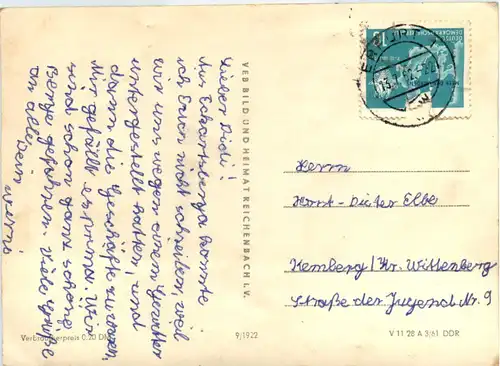 Lieber Dudi!
Aus Eckartsberga konnte
ich Euch nicht schreiben, weil
wir uns wegen einem Gewitter
untergestellt hatten, und
dann die Geschäfte zu waren.
Mir gefällt es prima. Wir
sind schon ganz schöne
Berge gefahren. Viele Grüße
an alle Dein
Werni
VEB BILD UND HEIMAT REICHENBACH I. V.
DEUTSCHE
DEMOKRATISCHE
15
Herrn
Horst-Dieter Elbe
Kemberg/Kr. Wittenberg
Straße der Jugend Nr. 9
Verbraucherpreis 0.20 DM
9/1922
V 11 28 A 3/61 DDR